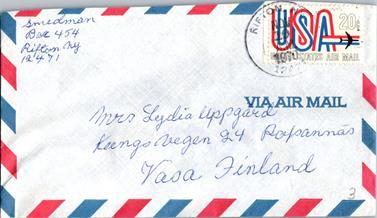 Smedman
Box 454
Rifton Ny
12471
RIFTON
1970
USA 20c
UNITED STATES AIR MAIL
VIA AIR MAIL
Mrs Lydia Uppgård
Kungsvegen 24 Roparnäs
Vasa Finland
3